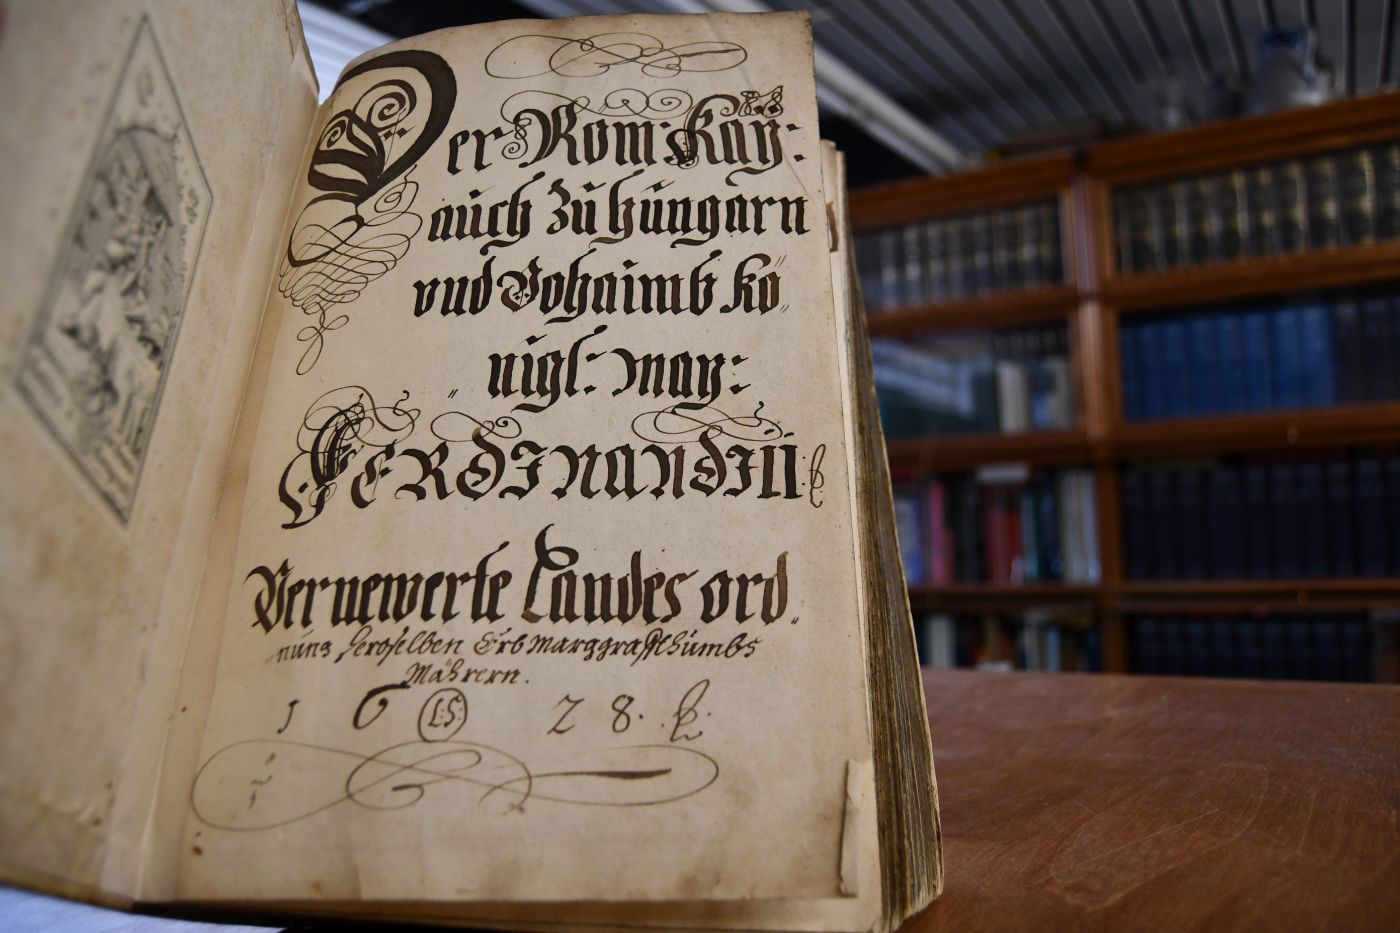 Der Röm: Kaÿ:
auch Zu Hungarn
vnd Bohaimb Kö„
„nigl: May:
FERDINANDI II
Vernewerte Landes ord„
„nung deroselben Erb Marggraffthumbs
Mährern.
16 L:S: 28.